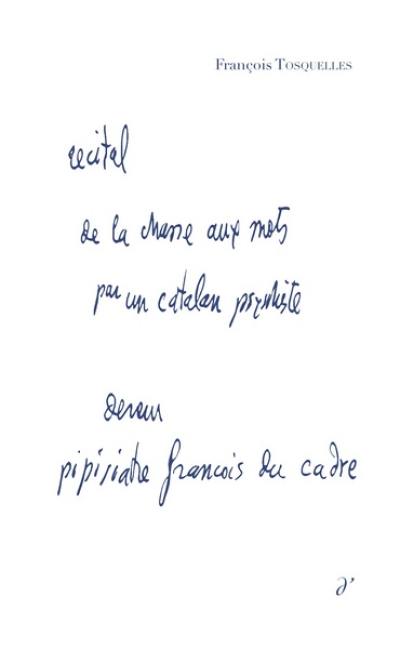 François TOSQUELLES
recital
de la chasse aux mots
par un catalan psychiste
devenu
pipisiatre francois du cadre
d'